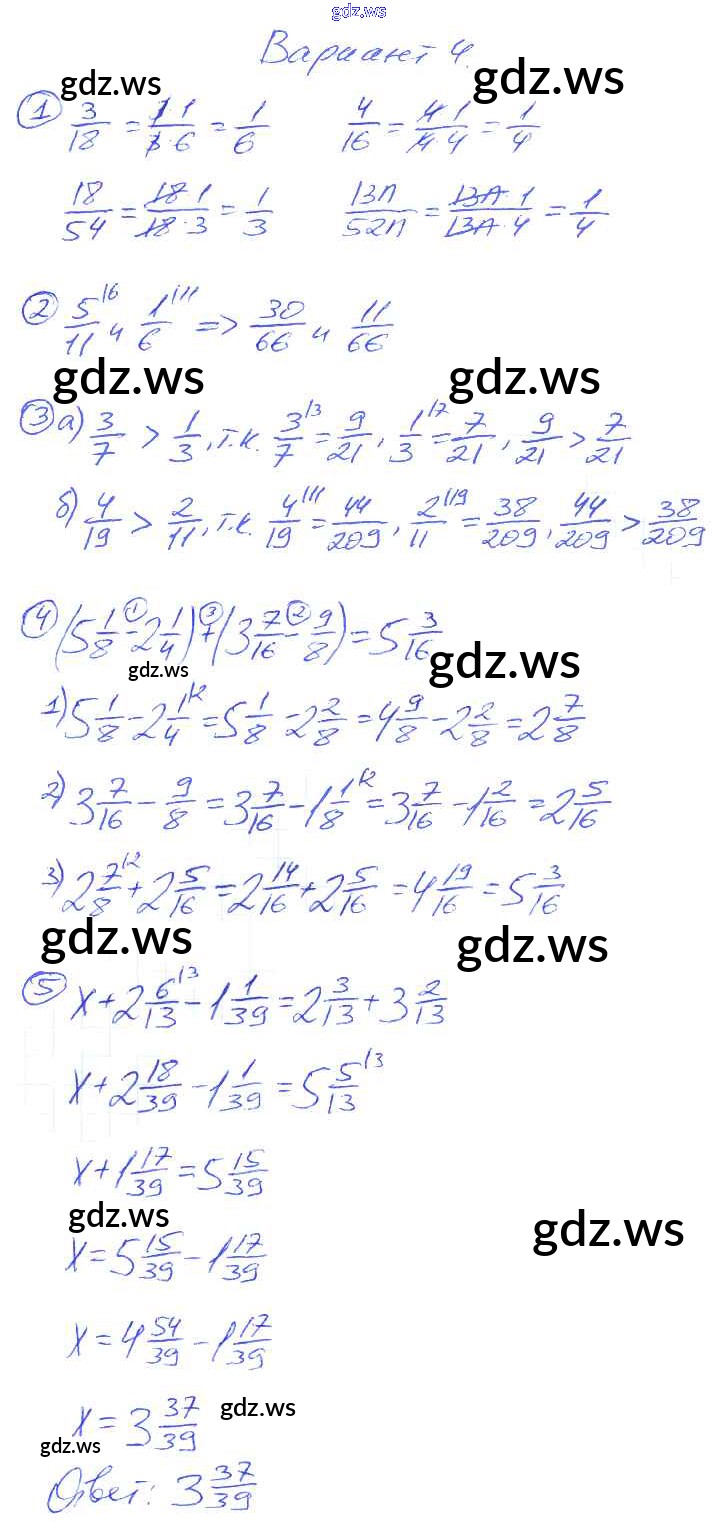 gdz.ws
Вариант 4.
gdz.ws gdz.ws
① 3/18 = 1̶·1/3̶·6 = 1/6 4/16 = 4̶·1/4̶·4 = 1/4
18/54 = 1̶8̶·1/1̶8̶·3 = 1/3 13п/52п = 1̶3̶п̶·1/1̶3̶п̶·4 = 1/4
② 5/11 |6 и 1/6 |11 => 30/66 и 11/66
gdz.ws gdz.ws
③ а) 3/7 > 1/3, т.к. 3/7 |3 = 9/21, 1/3 |7 = 7/21, 9/21 > 7/21
б) 4/19 > 2/11, т.к. 4/19 |11 = 44/209, 2/11 |19 = 38/209, 44/209 > 38/209
④ (5 1/8 -① 2 1/4) +③ (3 7/16 -② 9/8) = 5 3/16
gdz.ws gdz.ws
1) 5 1/8 - 2 1/4 |2 = 5 1/8 - 2 2/8 = 4 9/8 - 2 2/8 = 2 7/8
2) 3 7/16 - 9/8 = 3 7/16 - 1 1/8 |2 = 3 7/16 - 1 2/16 = 2 5/16
3) 2 7/8 |2 + 2 5/16 = 2 14/16 + 2 5/16 = 4 19/16 = 5 3/16
gdz.ws gdz.ws
⑤ x + 2 6/13 |3 - 1 1/39 = 2 3/13 + 3 2/13
x + 2 18/39 - 1 1/39 = 5 5/13 |3
x + 1 17/39 = 5 15/39
gdz.ws gdz.ws
x = 5 15/39 - 1 17/39
x = 4 54/39 - 1 17/39
x = 3 37/39
gdz.ws gdz.ws
Ответ: 3 37/39